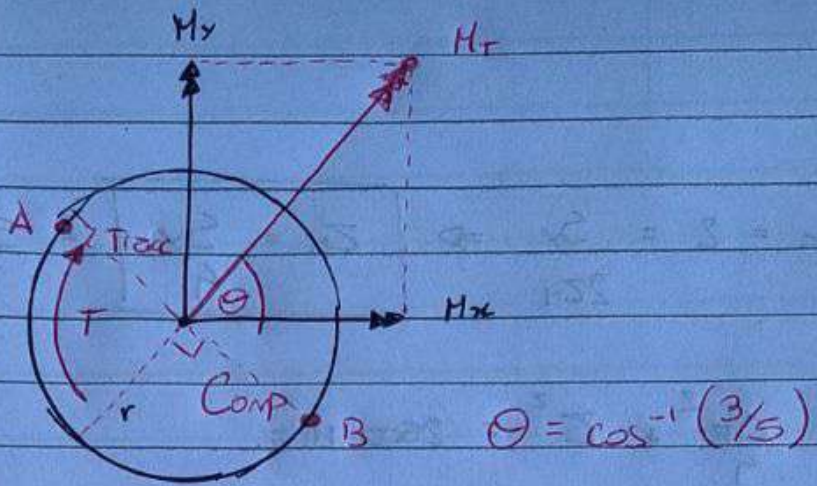 My
Mr
A
Trac
θ
Mx
T
r
Comp
B
θ = cos⁻¹ (3/5)